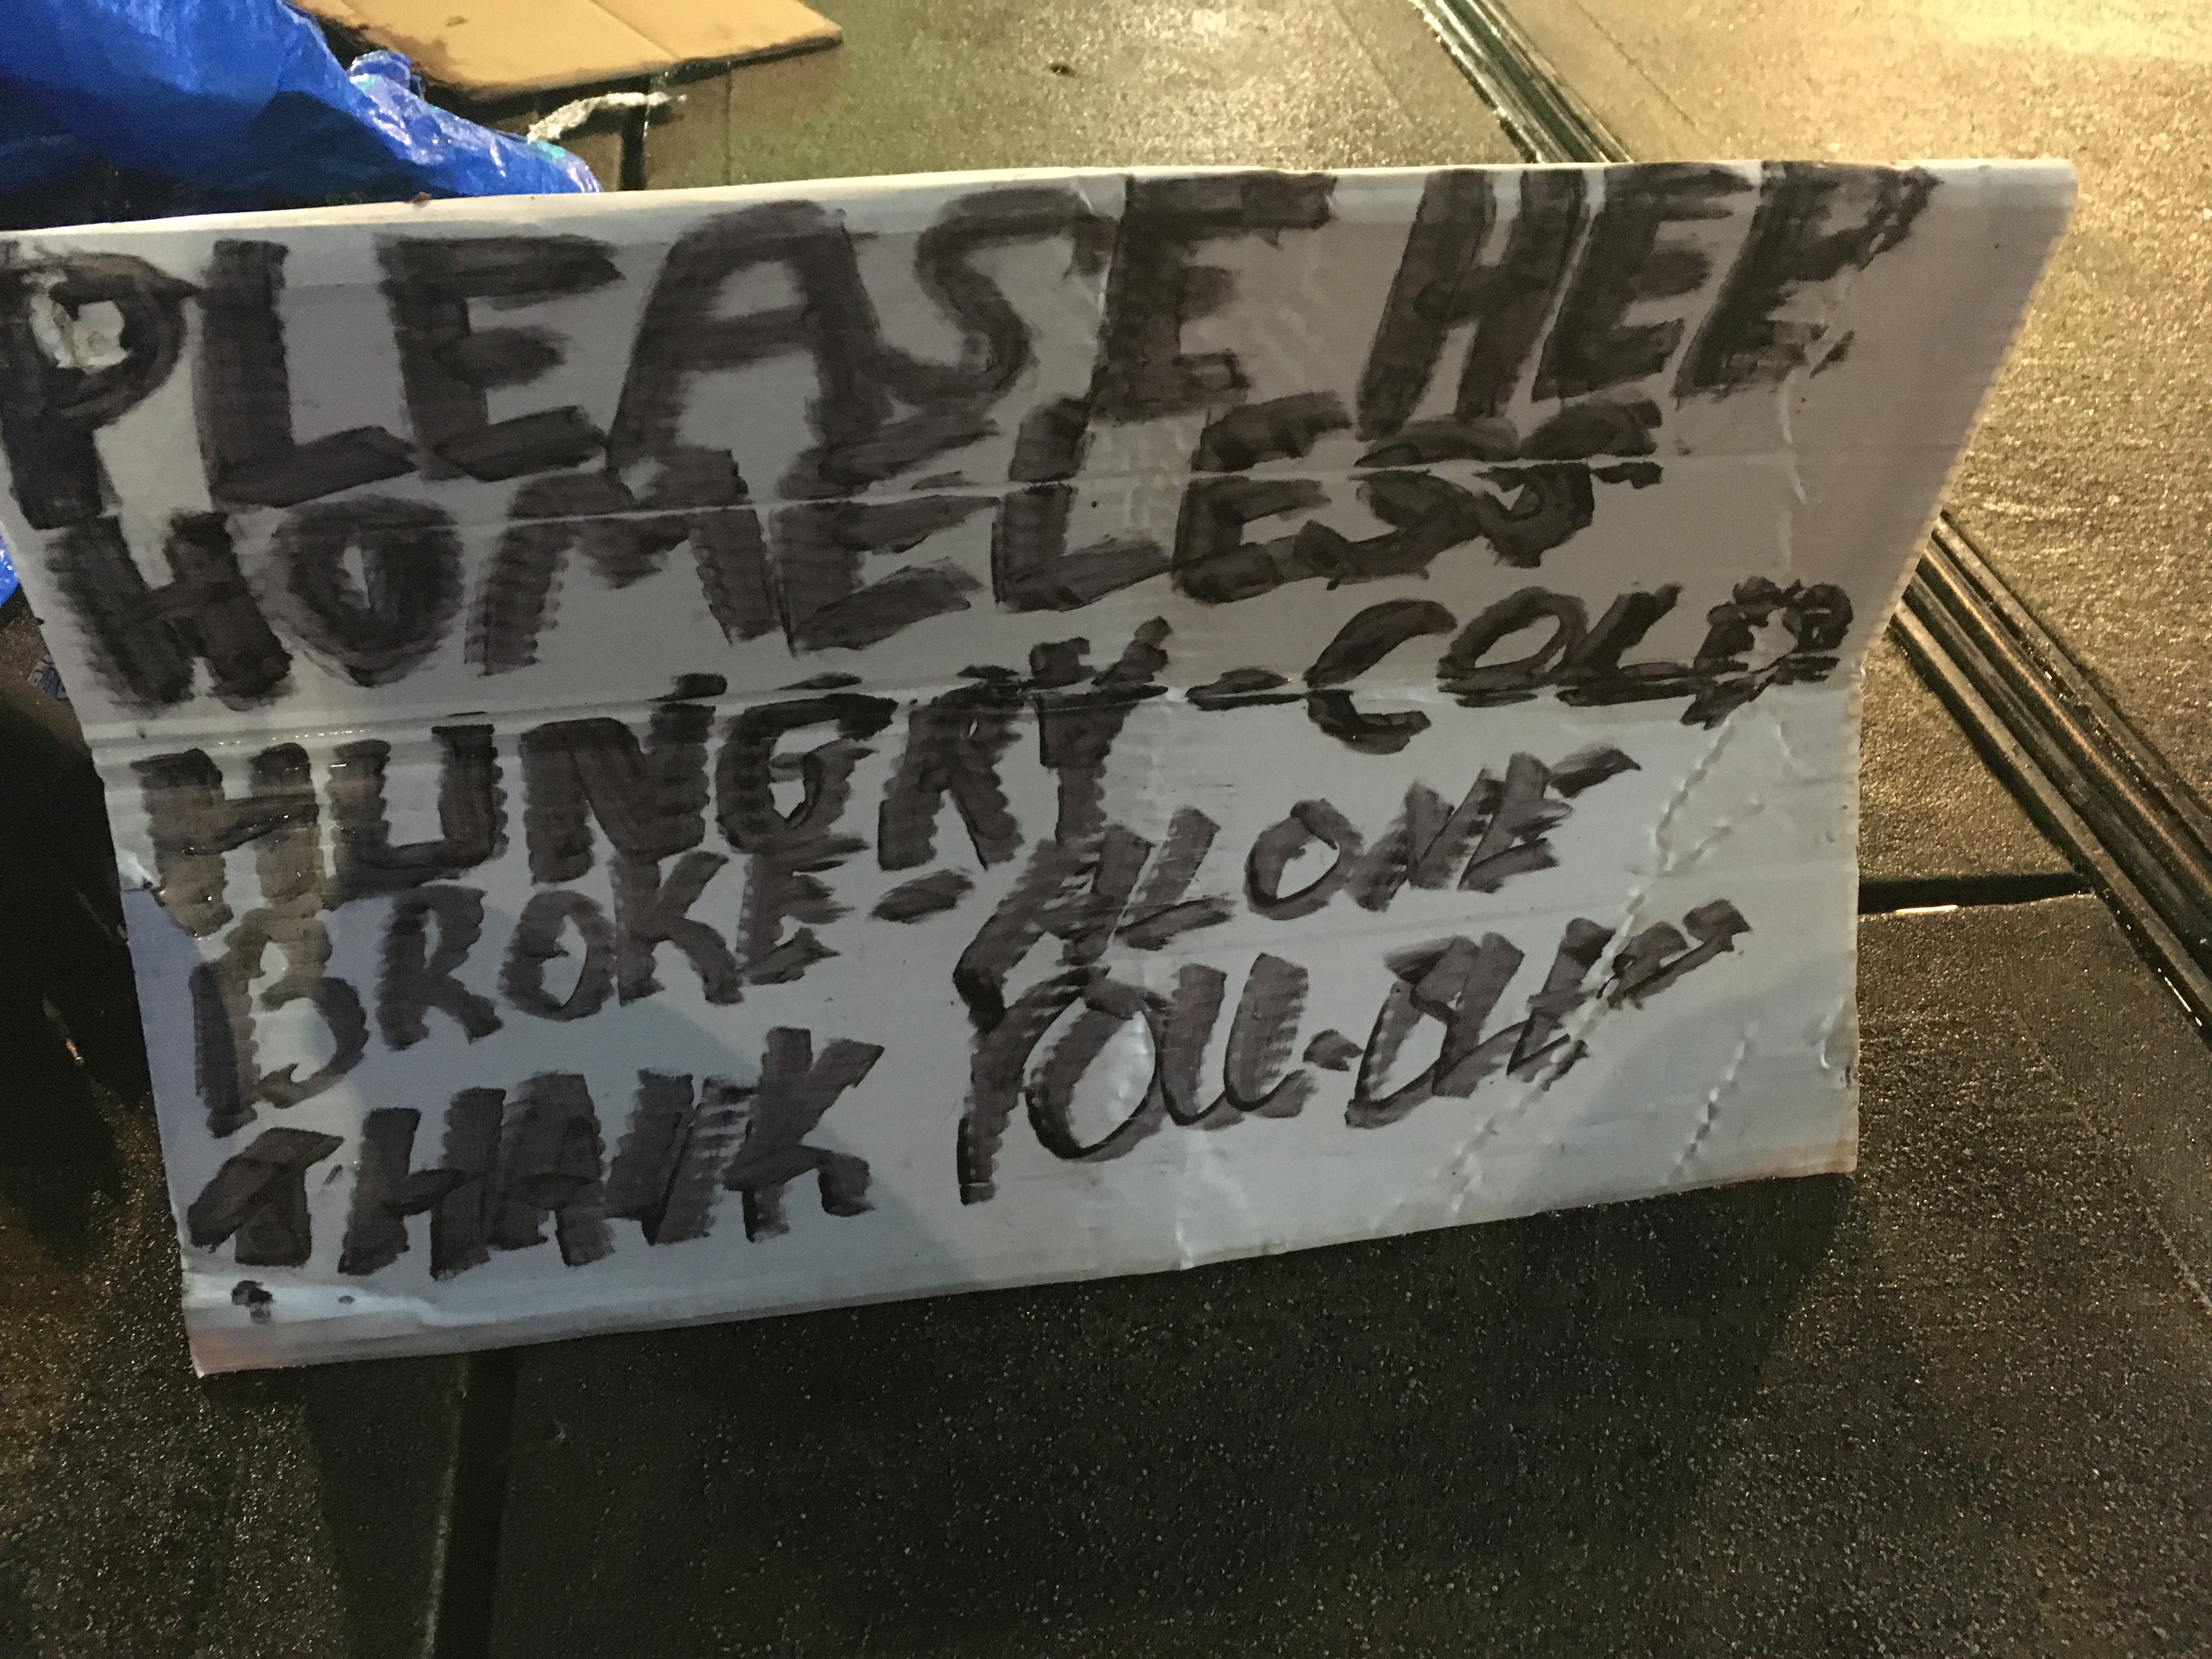 PLEASE HEEP
HOMELESS
HUNGRY-COLD
BROKE-ALONE
THANK YOU-